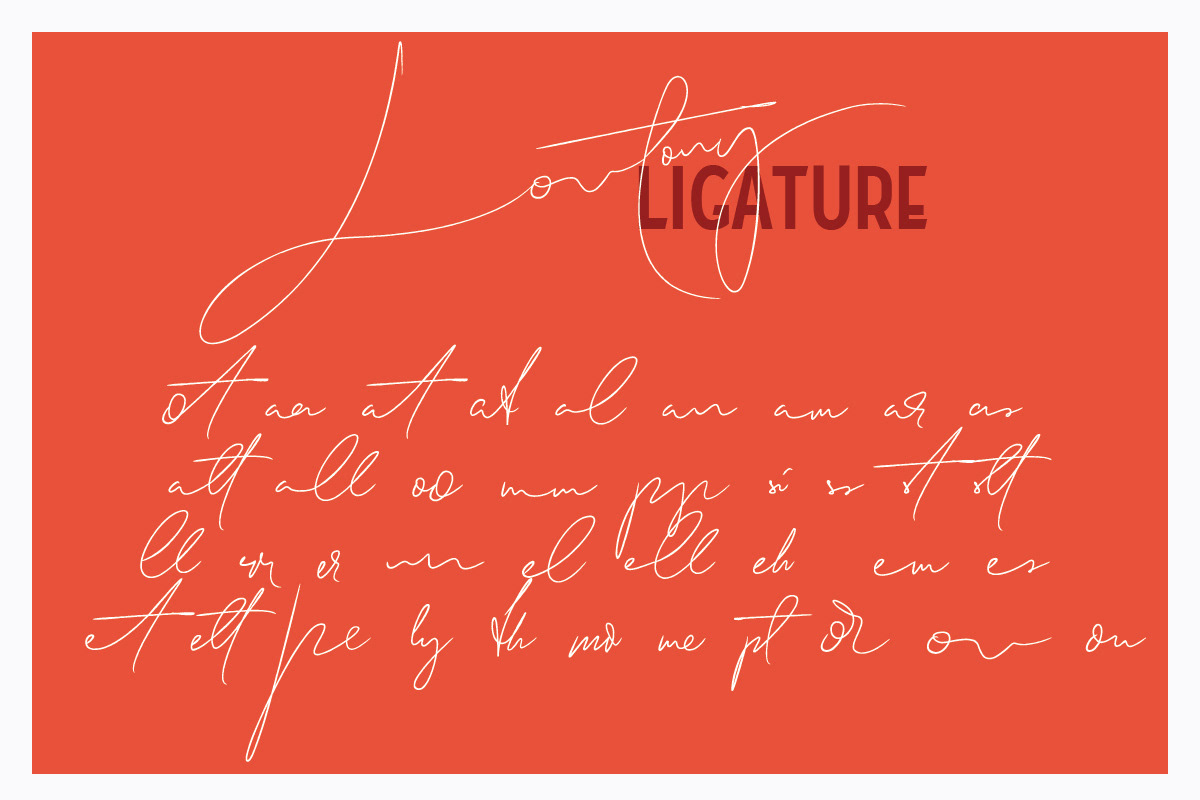 Lontony
LIGATURE
ot at al an am ar as
att all oo mm pp si ss st stt
ll rr er nn el ell eh em es
et ett pe ly th mo me pt or on ou